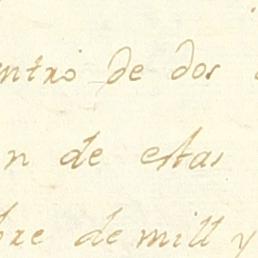 ntro de dos
n de estas
bre de mill y